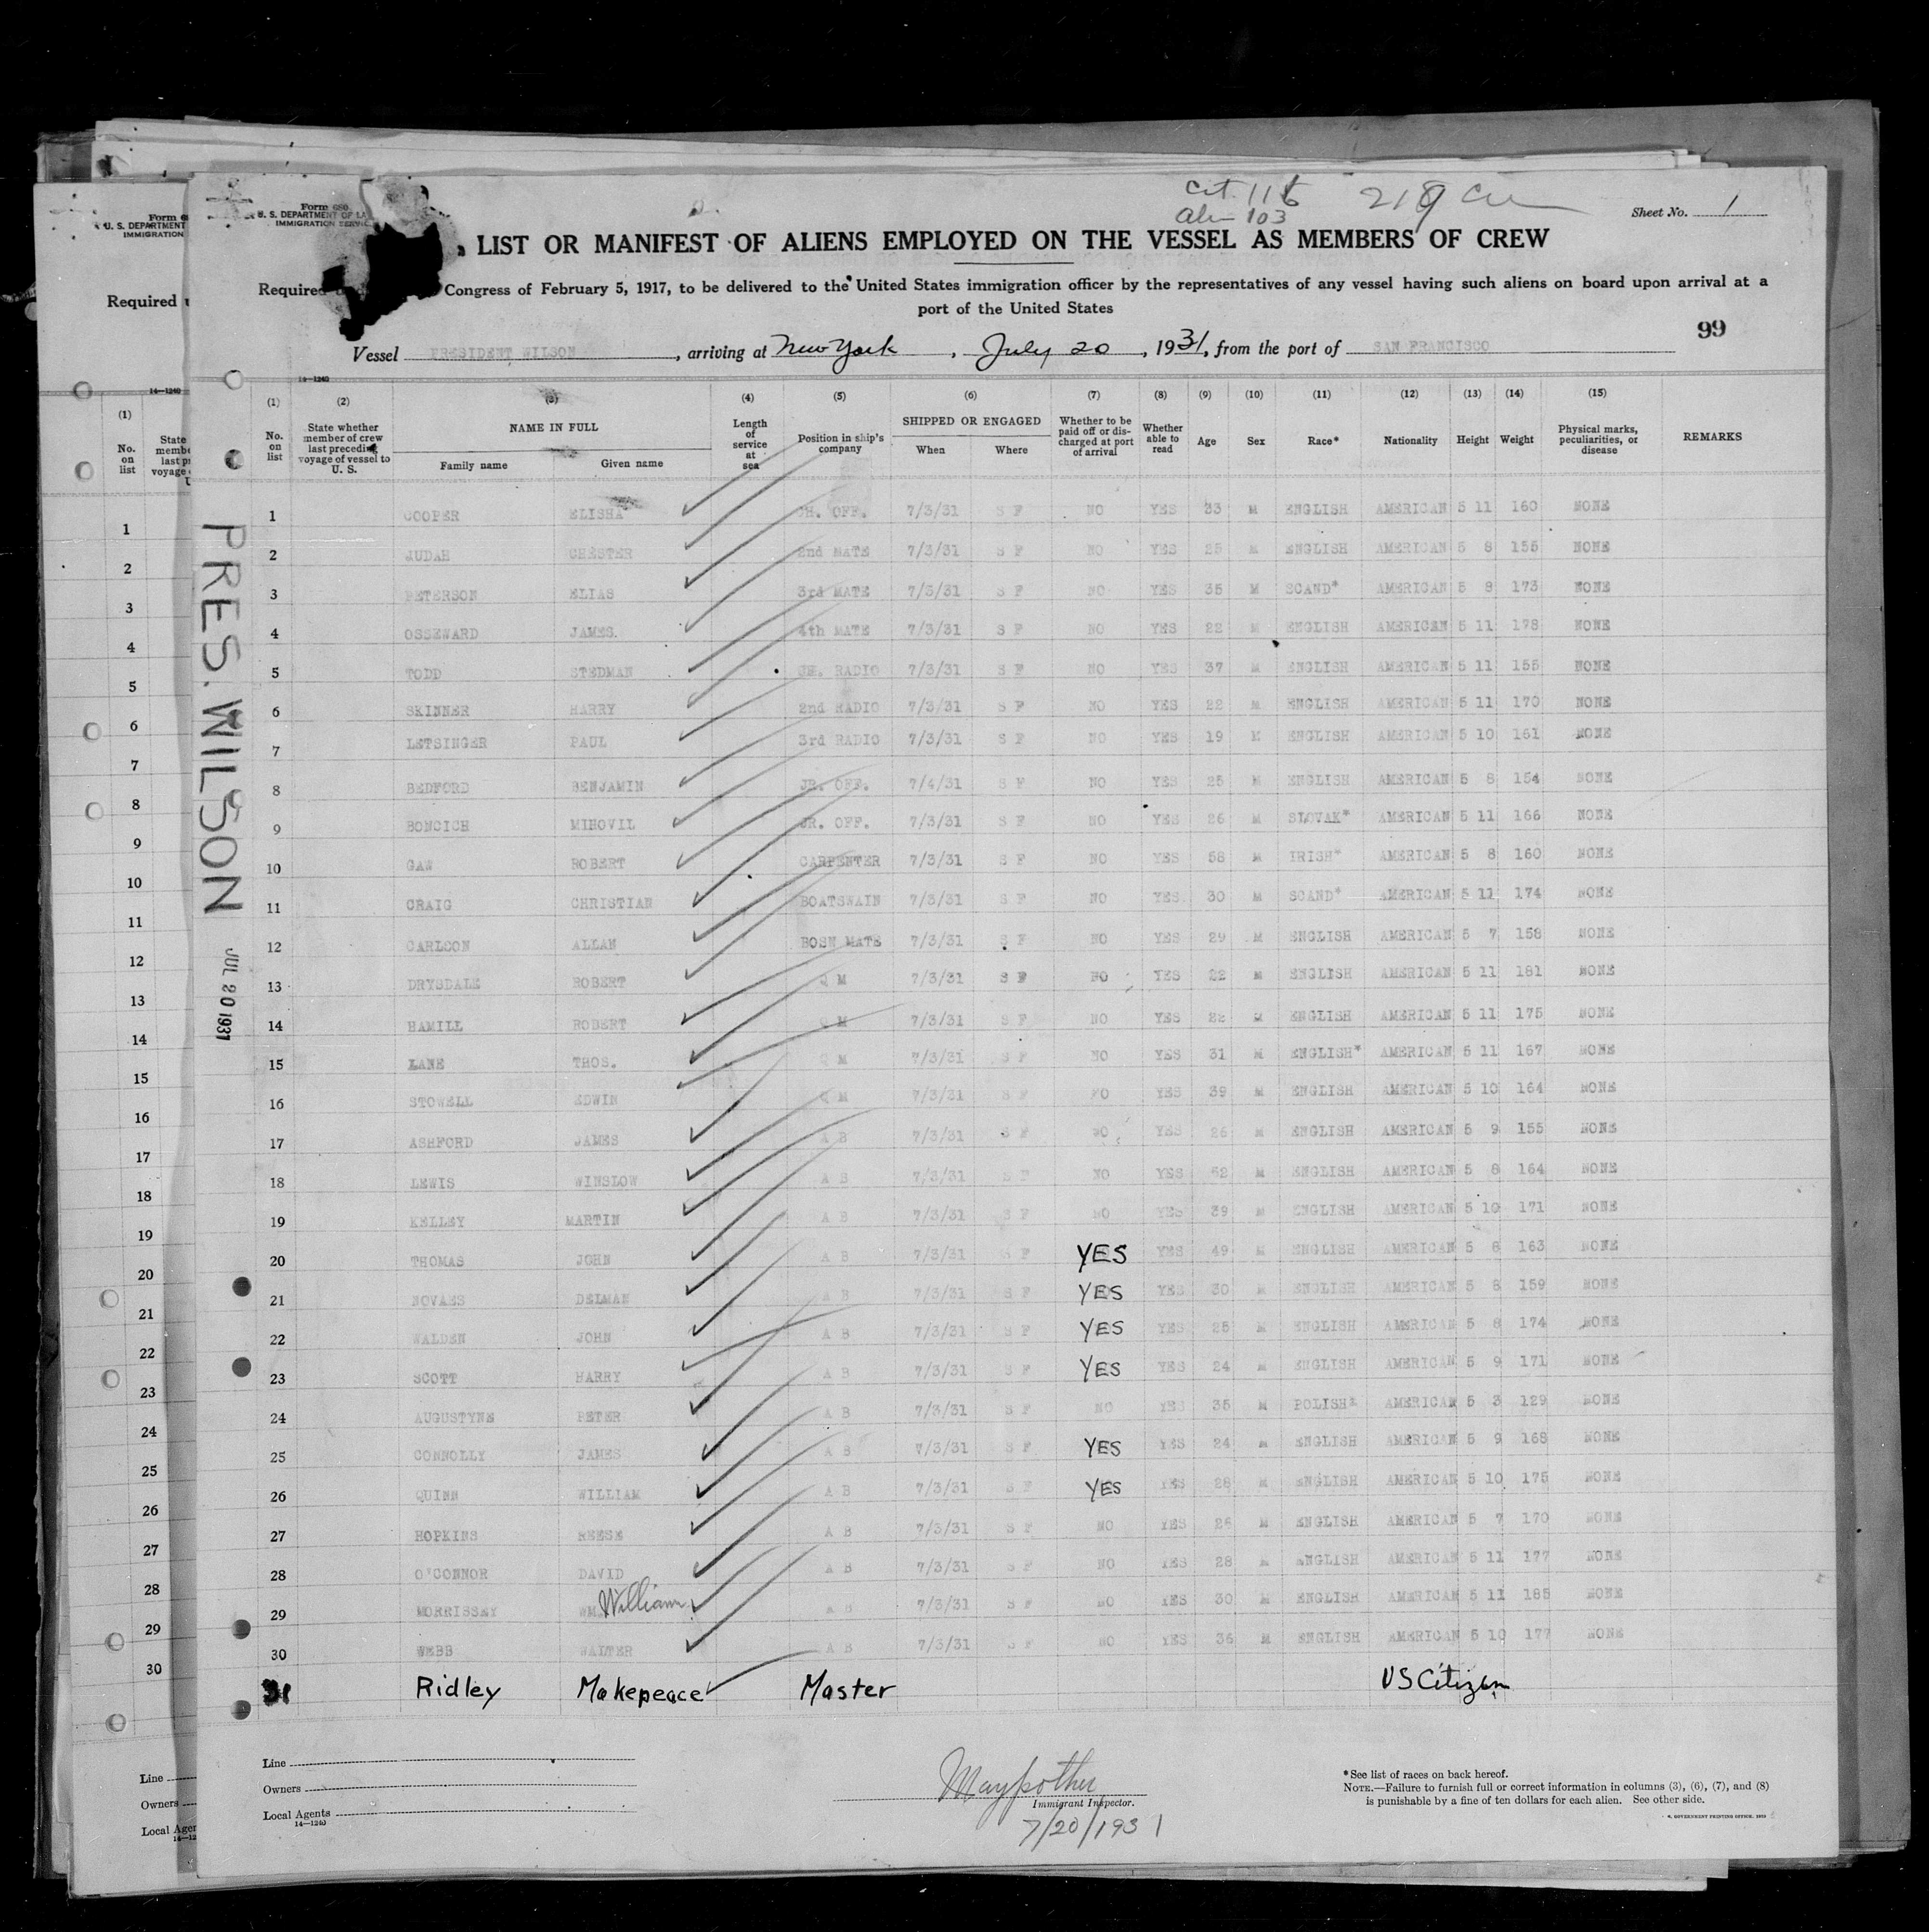 Cit. 116 219 Crew
Alien 103
Sheet No. 1
Form 680
U. S. DEPARTMENT OF LA
IMMIGRATION SERVIC
LIST OR MANIFEST OF ALIENS EMPLOYED ON THE VESSEL AS MEMBERS OF CREW
Required Congress of February 5, 1917, to be delivered to the United States immigration officer by the representatives of any vessel having such aliens on board upon arrival at a
port of the United States
99
Vessel PRESIDENT WILSON, arriving at New York, July 20, 1931, from the port of SAN FRANCISCO
14—1240
(1) (2) (3) (4) (5) (6) (7) (8) (9) (10) (11) (12) (13) (14) (15)
No. on list State whether member of crew last preceding voyage of vessel to U. S. NAME IN FULL Family name Given name Length of service at sea Position in ship's company SHIPPED OR ENGAGED When Where Whether to be paid off or discharged at port of arrival Whether able to read Age Sex Race* Nationality Height Weight Physical marks, peculiarities, or disease REMARKS
PRES. WILSON JUL 20 1931
1 COOPER ELISHA CH. OFF. 7/3/31 S F NO YES 33 M ENGLISH AMERICAN 5 11 160 NONE
2 JUDAH CHESTER 2nd MATE 7/3/31 S F NO YES 25 M ENGLISH AMERICAN 5 8 155 NONE
3 PETERSON ELIAS 3rd MATE 7/3/31 S F NO YES 35 M SCAND* AMERICAN 5 8 173 NONE
4 OSSEWARD JAMES. 4th MATE 7/3/31 S F NO YES 22 M ENGLISH AMERICAN 5 11 178 NONE
5 TODD STEDMAN CH. RADIO 7/3/31 S F NO YES 37 M ENGLISH AMERICAN 5 11 155 NONE
6 SKINNER HARRY 2nd RADIO 7/3/31 S F NO YES 22 M ENGLISH AMERICAN 5 11 170 NONE
7 LETSINGER PAUL 3rd RADIO 7/3/31 S F NO YES 19 M ENGLISH AMERICAN 5 10 161 NONE
8 BEDFORD BENJAMIN JR. OFF. 7/4/31 S F NO YES 25 M ENGLISH AMERICAN 5 8 154 NONE
9 BONCICH MIHOVIL JR. OFF. 7/3/31 S F NO YES 26 M SLOVAK* AMERICAN 5 11 166 NONE
10 GAW ROBERT CARPENTER 7/3/31 S F NO YES 58 M IRISH* AMERICAN 5 8 160 NONE
11 CRAIG CHRISTIAN BOATSWAIN 7/3/31 S F NO YES 30 M SCAND* AMERICAN 5 11 174 NONE
12 CARLSON ALLAN BOSN MATE 7/3/31 S F NO YES 29 M ENGLISH AMERICAN 5 7 158 NONE
13 DRYSDALE ROBERT Q M 7/3/31 S F NO YES 22 M ENGLISH AMERICAN 5 11 181 NONE
14 HAMILL ROBERT Q M 7/3/31 S F NO YES 22 M ENGLISH AMERICAN 5 11 175 NONE
15 LANE THOS. Q M 7/3/31 S F NO YES 31 M ENGLISH* AMERICAN 5 11 167 NONE
16 STOWELL EDWIN Q M 7/3/31 S F NO YES 39 M ENGLISH AMERICAN 5 10 164 NONE
17 ASHFORD JAMES A B 7/3/31 S F NO YES 26 M ENGLISH AMERICAN 5 9 155 NONE
18 LEWIS WINSLOW A B 7/3/31 S F NO YES 52 M ENGLISH AMERICAN 5 8 164 NONE
19 KELLEY MARTIN A B 7/3/31 S F NO YES 39 M ENGLISH AMERICAN 5 10 171 NONE
20 THOMAS JOHN A B 7/3/31 S F YES YES 49 M ENGLISH AMERICAN 5 8 163 NONE
21 NOVAES DELMAN A B 7/3/31 S F YES YES 30 M ENGLISH AMERICAN 5 8 159 NONE
22 WALDEN JOHN A B 7/3/31 S F YES YES 25 M ENGLISH AMERICAN 5 8 174 NONE
23 SCOTT HARRY A B 7/3/31 S F YES YES 24 M ENGLISH AMERICAN 5 9 171 NONE
24 AUGUSTYNE PETER A B 7/3/31 S F NO YES 35 M POLISH* AMERICAN 5 3 129 NONE
25 CONNOLLY JAMES A B 7/3/31 S F YES YES 24 M ENGLISH AMERICAN 5 9 168 NONE
26 QUINN WILLIAM A B 7/3/31 S F YES YES 28 M ENGLISH AMERICAN 5 10 175 NONE
27 HOPKINS REESE A B 7/3/31 S F NO YES 26 M ENGLISH AMERICAN 5 7 170 NONE
28 O'CONNOR DAVID A B 7/3/31 S F NO YES 28 M ENGLISH AMERICAN 5 11 177 NONE
29 MORRISSEY WM. William A B 7/3/31 S F NO YES 30 M ENGLISH AMERICAN 5 11 185 NONE
30 WEBB WALTER A B 7/3/31 S F NO YES 36 M ENGLISH AMERICAN 5 10 177 NONE
31 Ridley Makepeace Master US Citizen
Line
Owners
Local Agents
14—1240
Maypother
Immigrant Inspector.
7/20/1931
*See list of races on back hereof.
NOTE.—Failure to furnish full or correct information in columns (3), (6), (7), and (8)
is punishable by a fine of ten dollars for each alien. See other side.